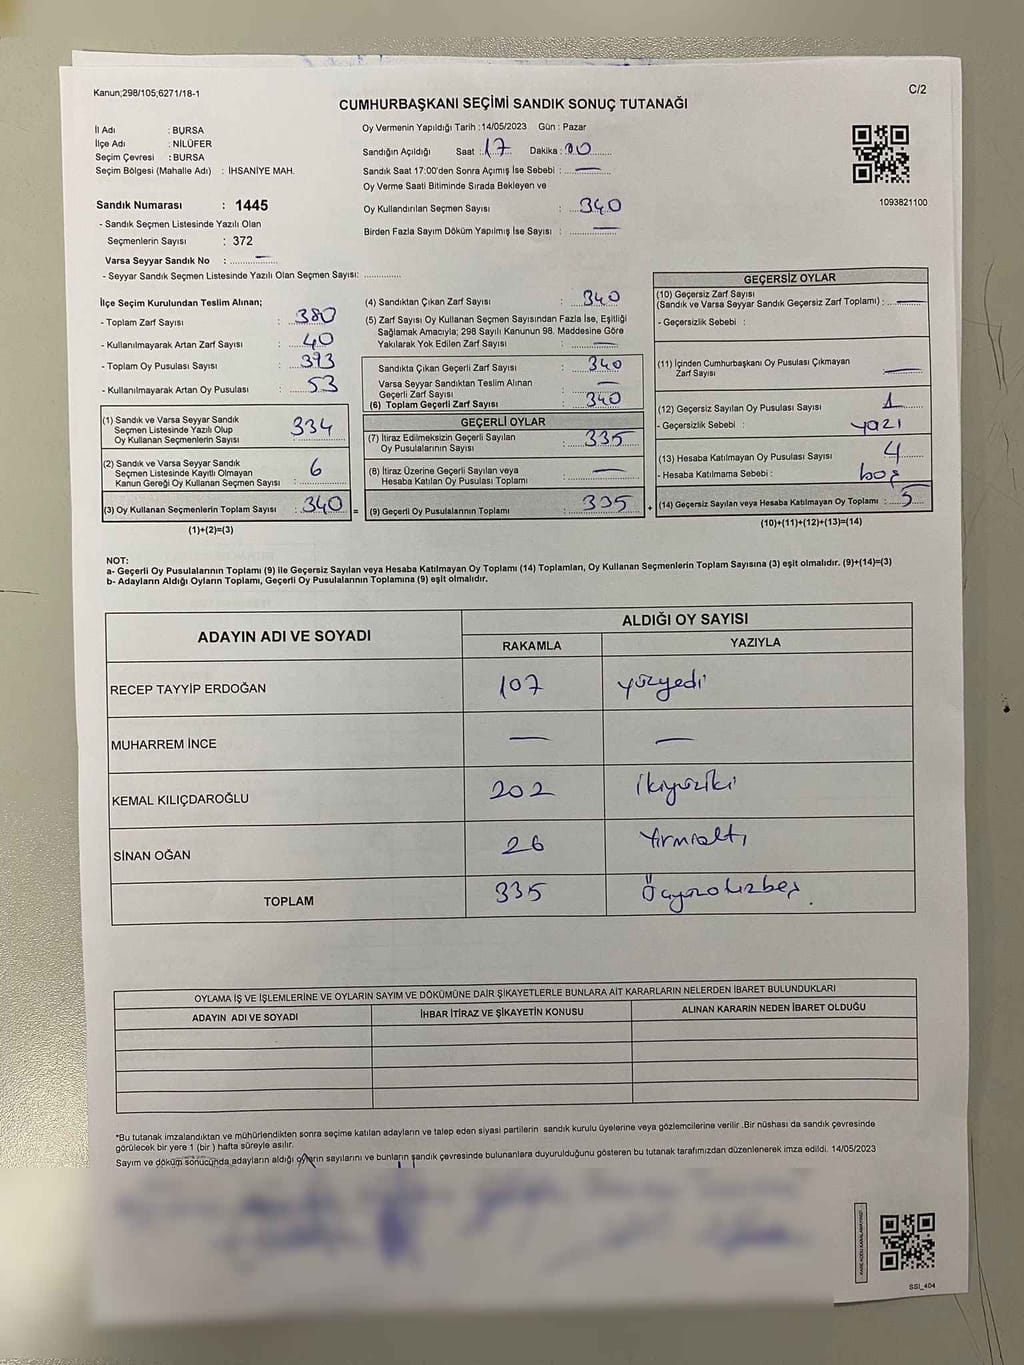 Kanun;298/105;6271/18-1
C/2
CUMHURBAŞKANI SEÇİMİ SANDIK SONUÇ TUTANAĞI
İl Adı : BURSA
İlçe Adı : NİLÜFER
Seçim Çevresi : BURSA
Seçim Bölgesi (Mahalle Adı) : İHSANİYE MAH.
Sandık Numarası : 1445
- Sandık Seçmen Listesinde Yazılı Olan
Seçmenlerin Sayısı : 372
Varsa Seyyar Sandık No : —
- Seyyar Sandık Seçmen Listesinde Yazılı Olan Seçmen Sayısı: ............
Oy Vermenin Yapıldığı Tarih :14/05/2023 Gün : Pazar
Sandığın Açıldığı Saat : 17 Dakika : 00
Sandık Saat 17:00'den Sonra Açımış İse Sebebi : —
Oy Verme Saati Bitiminde Sırada Bekleyen ve
Oy Kullandırılan Seçmen Sayısı : 340
Birden Fazla Sayım Döküm Yapılmış İse Sayısı : —
1093821100
İlçe Seçim Kurulundan Teslim Alınan;
- Toplam Zarf Sayısı : 380
- Kullanılmayarak Artan Zarf Sayısı : 40
- Toplam Oy Pusulası Sayısı : 393
- Kullanılmayarak Artan Oy Pusulası : 53
(1) Sandık ve Varsa Seyyar Sandık
Seçmen Listesinde Yazılı Olup
Oy Kullanan Seçmenlerin Sayısı : 334
(2) Sandık ve Varsa Seyyar Sandık
Seçmen Listesinde Kayıtlı Olmayan
Kanun Gereği Oy Kullanan Seçmen Sayısı : 6
(3) Oy Kullanan Seçmenlerin Toplam Sayısı : 340 =
(1)+(2)=(3)
(4) Sandıktan Çıkan Zarf Sayısı : 340
(5) Zarf Sayısı Oy Kullanan Seçmen Sayısından Fazla İse, Eşitliği
Sağlamak Amacıyla; 298 Sayılı Kanunun 98. Maddesine Göre
Yakılarak Yok Edilen Zarf Sayısı : —
Sandıkta Çıkan Geçerli Zarf Sayısı : 340
Varsa Seyyar Sandıktan Teslim Alınan
Geçerli Zarf Sayısı : —
(6) Toplam Geçerli Zarf Sayısı : 340
GEÇERLİ OYLAR
(7) İtiraz Edilmeksizin Geçerli Sayılan
Oy Pusulalarının Sayısı : 335
(8) İtiraz Üzerine Geçerli Sayılan veya
Hesaba Katılan Oy Pusulası Toplamı : —
(9) Geçerli Oy Pusulalarının Toplamı : 335 +
GEÇERSİZ OYLAR
(10) Geçersiz Zarf Sayısı
(Sandık ve Varsa Seyyar Sandık Geçersiz Zarf Toplamı) : —
- Geçersizlik Sebebi :
(11) İçinden Cumhurbaşkanı Oy Pusulası Çıkmayan
Zarf Sayısı —
(12) Geçersiz Sayılan Oy Pusulası Sayısı : 1
- Geçersizlik Sebebi : yazı
(13) Hesaba Katılmayan Oy Pusulası Sayısı : 4
- Hesaba Katılmama Sebebi : boş
(14) Geçersiz Sayılan veya Hesaba Katılmayan Oy Toplamı : 5
(10)+(11)+(12)+(13)=(14)
NOT:
a- Geçerli Oy Pusulalarının Toplamı (9) ile Geçersiz Sayılan veya Hesaba Katılmayan Oy Toplamı (14) Toplamları, Oy Kullanan Seçmenlerin Toplam Sayısına (3) eşit olmalıdır. (9)+(14)=(3)
b- Adayların Aldığı Oyların Toplamı, Geçerli Oy Pusulalarının Toplamına (9) eşit olmalıdır.
ADAYIN ADI VE SOYADI
ALDIĞI OY SAYISI
RAKAMLA YAZIYLA
RECEP TAYYİP ERDOĞAN 107 yüzyedi
MUHARREM İNCE — —
KEMAL KILIÇDAROĞLU 202 ikiyüziki
SİNAN OĞAN 26 Yirmialtı
TOPLAM 335 Üçyüzotuzbeş.
OYLAMA İŞ VE İŞLEMLERİNE VE OYLARIN SAYIM VE DÖKÜMÜNE DAİR ŞİKAYETLERLE BUNLARA AİT KARARLARIN NELERDEN İBARET BULUNDUKLARI
ADAYIN ADI VE SOYADI İHBAR İTİRAZ VE ŞİKAYETİN KONUSU ALINAN KARARIN NEDEN İBARET OLDUĞU
*Bu tutanak imzalandıktan ve mühürlendikten sonra seçime katılan adayların ve talep eden siyasi partilerin sandık kurulu üyelerine veya gözlemcilerine verilir .Bir nüshası da sandık çevresinde
görülecek bir yere 1 (bir ) hafta süreyle asılır.
Sayım ve döküm sonucunda adayların aldığı oyların sayılarını ve bunların sandık çevresinde bulunanlara duyurulduğunu gösteren bu tutanak tarafımızdan düzenlenerek imza edildi. 14/05/2023
SSI_404